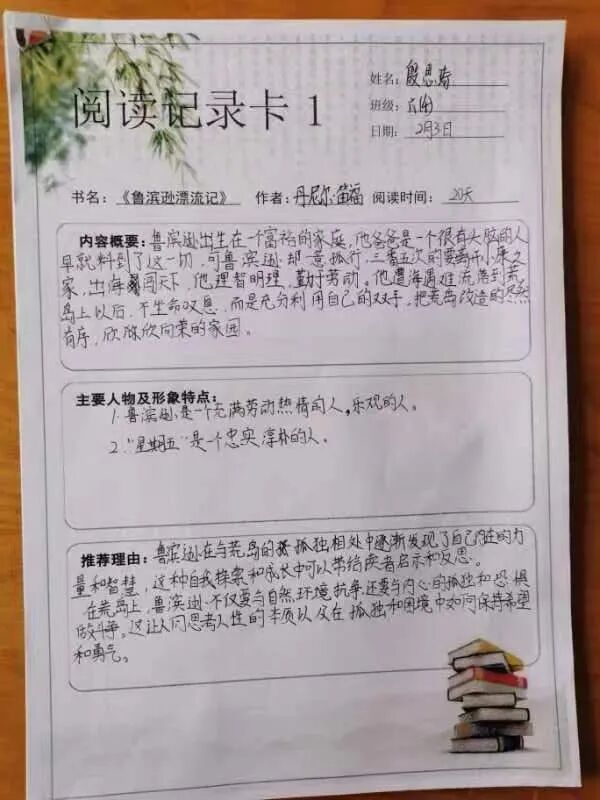 阅读记录卡1
姓名: 殷思
班级: 六
日期: 2月3日
书名: 《鲁滨逊漂流记》 作者: 丹尼尔·笛福 阅读时间: 20天
内容概要: 鲁滨逊出生在一个富裕的家庭,他爸爸是一个很有头脑的人
早就料到了这一切,可鲁滨逊却一意孤行,三番五次的要离开小康之
家,出海闯天下,他理智明理,勤于劳动。他遭海遇难流落到荒
岛上以后,不生命叹息,而是充分利用自己的双手,把荒岛改造的尽然
有序,欣欣欣向荣的家园。
主要人物及形象特点:
1. 鲁滨逊是一个充满劳动热情的人,乐观的人。
2. “星期五”是一个忠实淳朴的人。
推荐理由: 鲁滨逊在与荒岛的孤独相处中逐渐发现了自己内在的力
量和智慧,这种自我探索和成长中可以带给读者启示和反思。
在荒岛上,鲁滨逊不仅要与自然环境抗争还要与内心的孤独和恐惧
做斗争。这让人们思考人性的本质以及在孤独和困境中如何保持希望
和勇气。